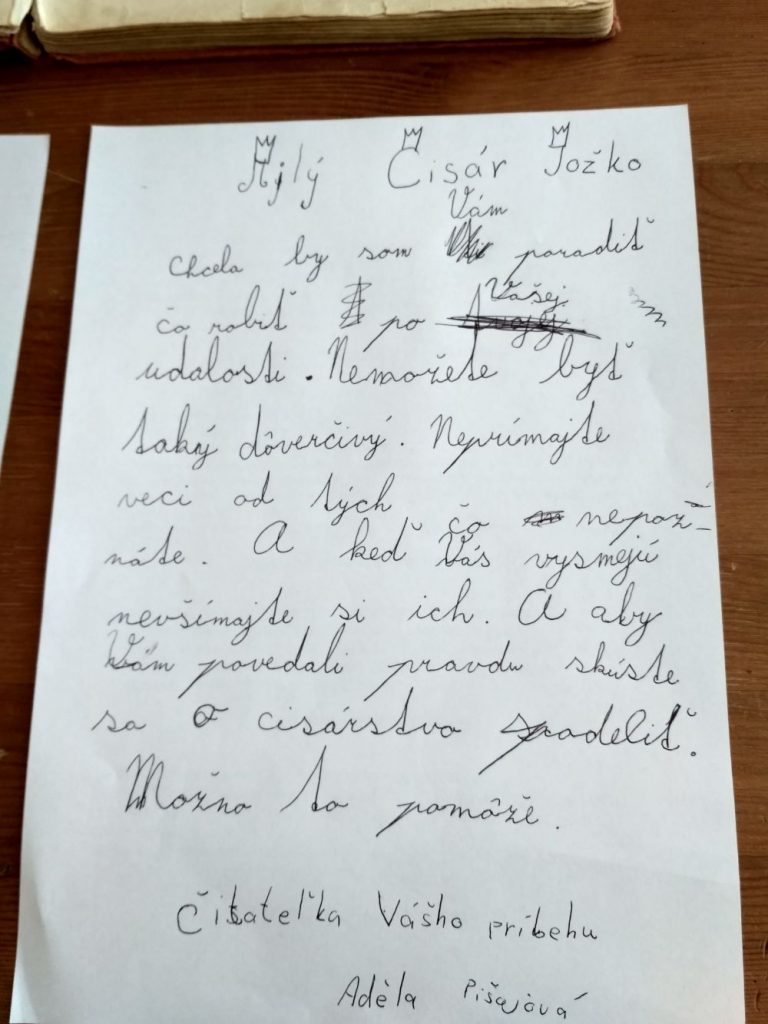 Mjlý Cisár Jožko
Vám
Chcela by som poradiť
Vašej
čo robiť po tvojej
udalosti. Nemožete byť
taký dôverčivý. Neprímajte
veci od tých čo nepoz-
náte. A keď Vás vysmejú
nevšímajte si ich. A aby
Vám povedali pravdu skúste
sa o cisárstvo podeliť.
Možno to pomôže.
Čitateľka Vášho príbehu
Adèla Pišajová